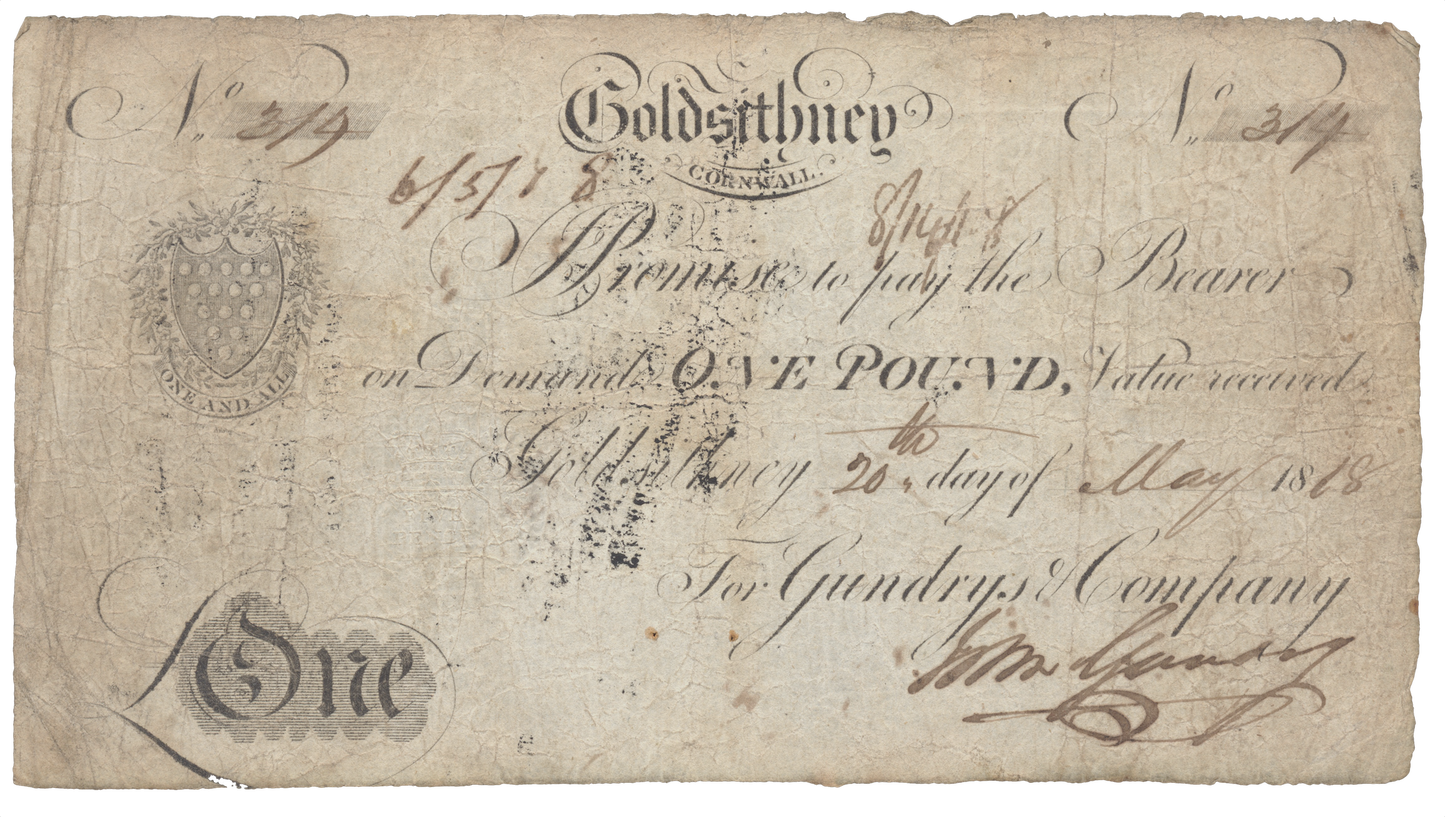 No 319
Goldsithney
No 319
CORNWALL.
6/5/18
I Promise to pay the Bearer
ONE AND ALL
on Demand ONE POUND, Value received
Goldsithney 20th day of May 1818
For Gundrys & Company
John Gundry
One